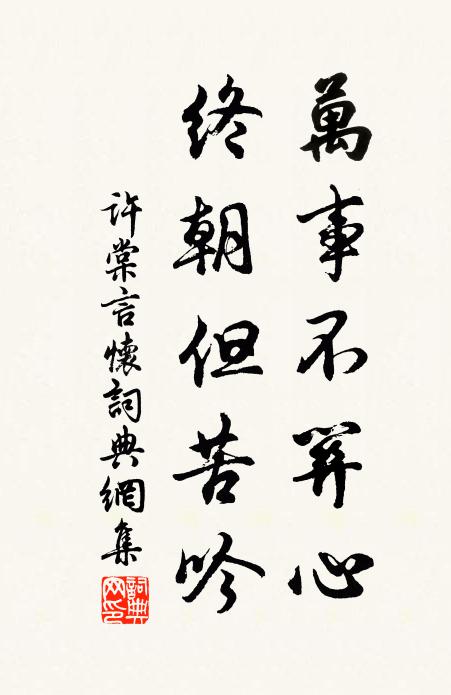 萬事不關心
終朝但苦吟
許棠言懷詞典網集
詞典
网印